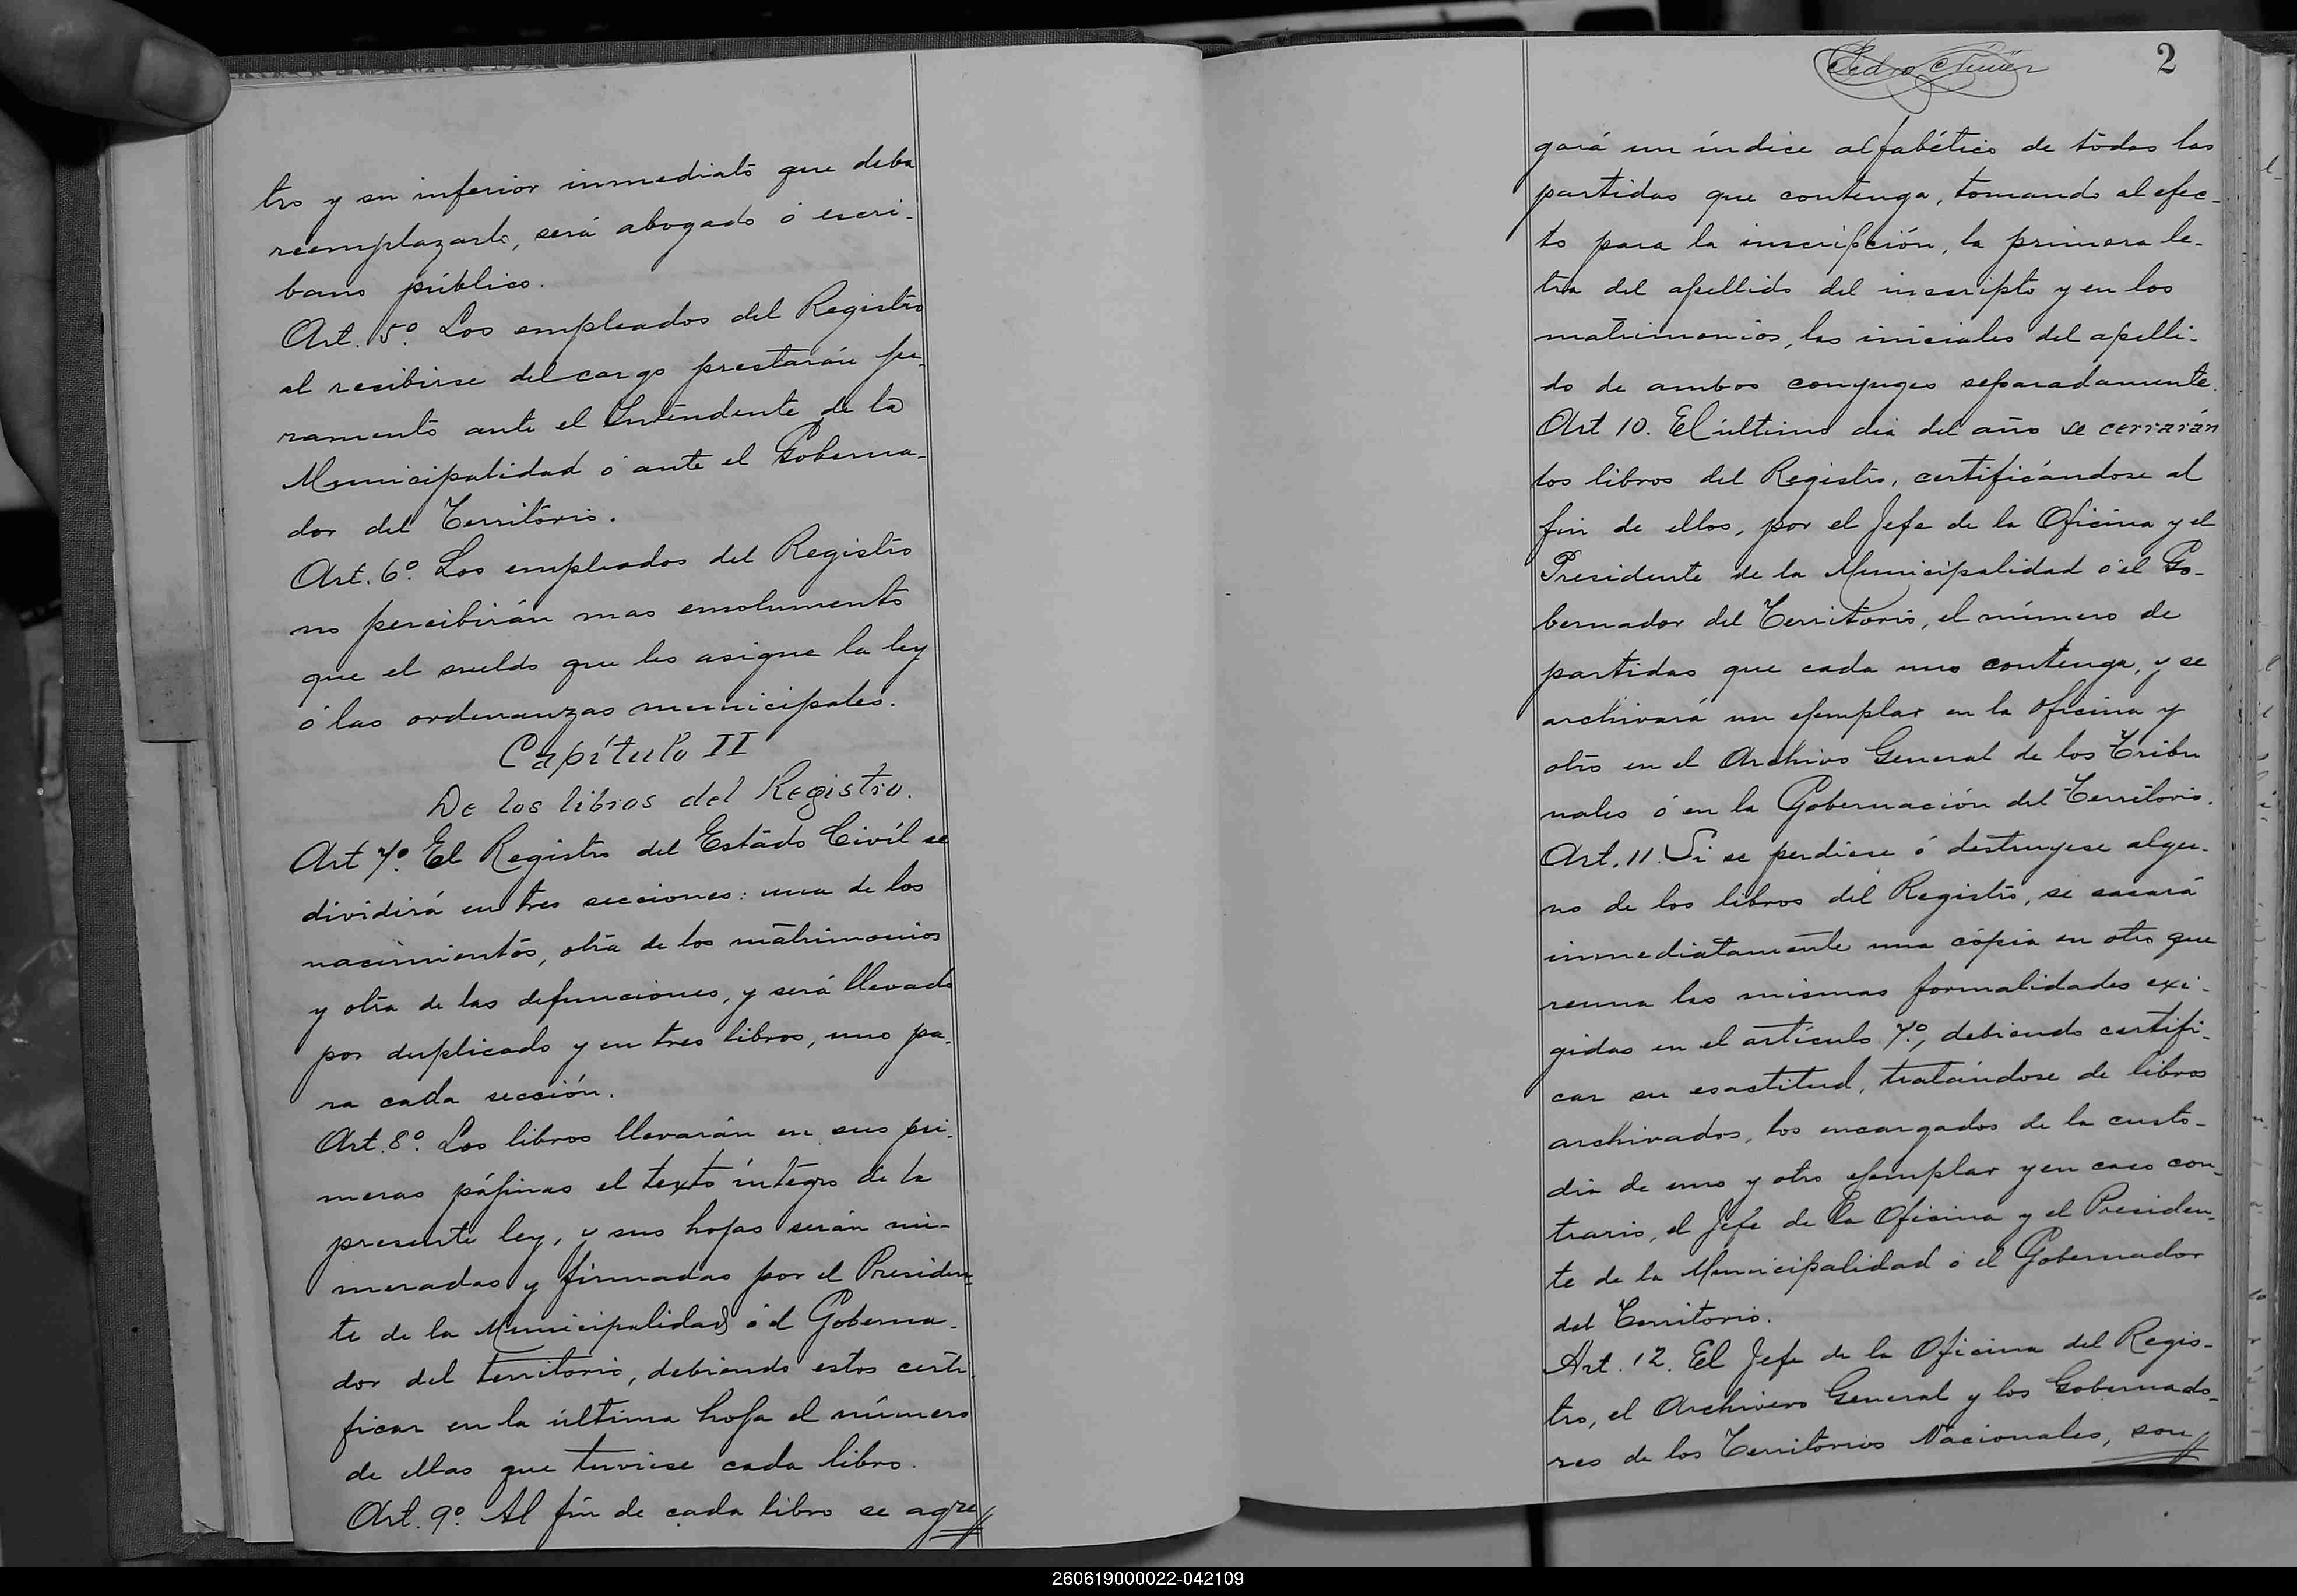 tro y su inferior inmediato que deba
reemplazarlo, será abogado ó escri-
bano público.
Art. 5º. Los empleados del Registro
al recibirse del cargo prestarán ju-
ramento ante el Intendente de la
Municipalidad ó ante el Goberna-
dor del Territorio.
Art. 6º. Los empleados del Registro
no percibirán mas emolumento
que el sueldo que les asigne la ley
ó las ordenanzas municipales.
Capítulo II
De los libros del Registro.
Art 7º. El Registro del Estado Civil se
dividirá en tres secciones: una de los
nacimientos, otra de los matrimonios
y otra de las defunciones, y será llevado
por duplicado y en tres libros, uno pa-
ra cada sección.
Art. 8º. Los libros llevarán en sus pri-
meras páginas el texto íntegro de la
presente ley, y sus hojas serán nu-
meradas y firmadas por el Presiden-
te de la Municipalidad ó el Goberna-
dor del territorio, debiendo estos certi-
ficar en la última hoja el número
de ellas que tuviese cada libro.
Art. 9º. Al fin de cada libro se agre
2
gará un índice alfabético de todas las
partidas que contenga, tomando al efec-
to para la inscripción, la primera le-
tra del apellido del inscripto y en los
matrimonios, las iniciales del apelli-
do de ambos conyuges separadamente.
Art 10. El último dia del año se cerrarán
los libros del Registro, certificándose al
fin de ellos, por el Jefe de la Oficina y el
Presidente de la Municipalidad ó el Go-
bernador del Territorio, el número de
partidas que cada uno contenga, y se
archivará un ejemplar en la Oficina y
otro en el Archivo General de los Tribu
nales ó en la Gobernación del Territorio.
Art. 11. Si se perdiere ó destruyese algu-
no de los libros del Registro, se sacará
inmediatamente una cópia en otro que
reuna las mismas formalidades exi-
gidas en el artículo 7º., debiendo certifi-
car su esactitud, tratándose de libros
archivados, los encargados de la custo-
dia de uno y otro ejemplar y en caso con-
trario, el Jefe de la Oficina y el Presiden-
te de la Municipalidad ó el Gobernador
del Territorio.
Art. 12. El Jefe de la Oficina del Regis-
tro, el Archivero General y los Gobernado-
res de los Territorios Nacionales, son
260619000022-042109